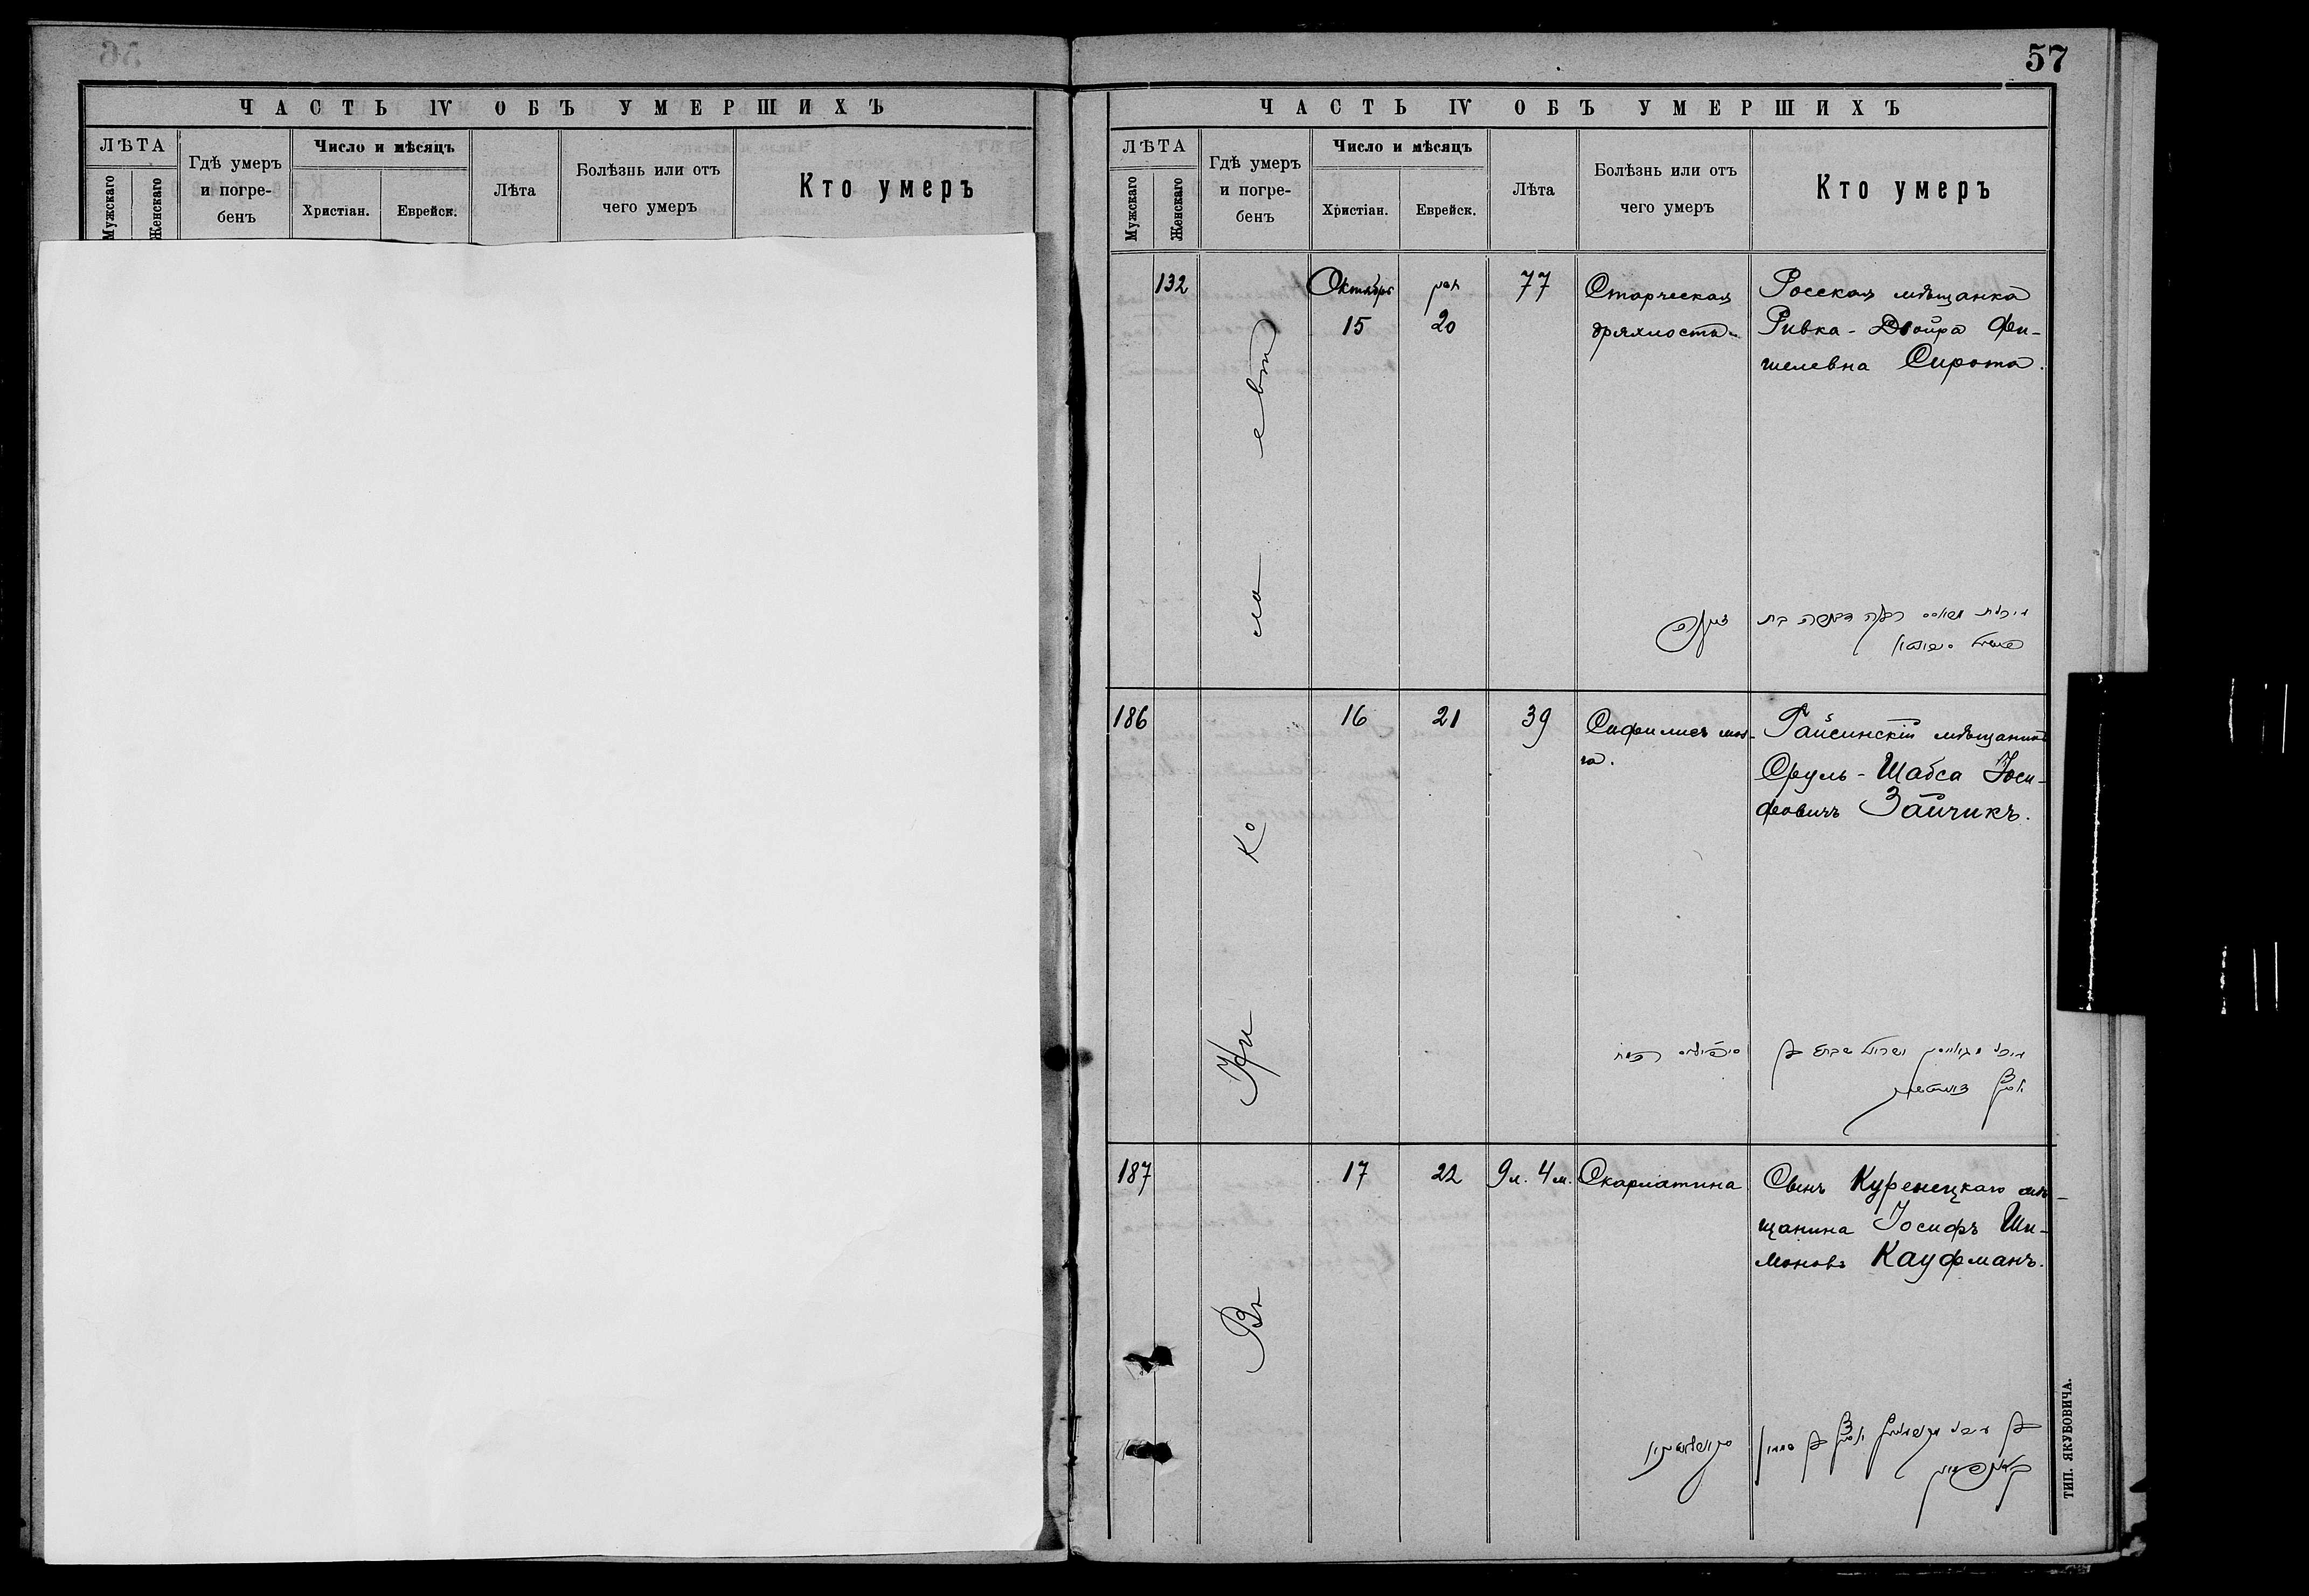 56
ЧАСТЬ IV ОБЪ УМЕРШИХЪ
ЛѢТА
Мужскаго
Женскаго
Гдѣ умеръ
и погре-
бенъ
Число и мѣсяцъ
Христіан.
Еврейск.
Лѣта
Болѣзнь или отъ
чего умеръ
Кто умеръ
57
ЧАСТЬ IV ОБЪ УМЕРШИХЪ
ЛѢТА
Мужскаго
Женскаго
Гдѣ умеръ
и погре-
бенъ
Число и мѣсяцъ
Христіан.
Еврейск.
Лѣта
Болѣзнь или отъ
чего умеръ
Кто умеръ
Въ Ни ко ла евѣ
132
Октябрь
15
20
77
Старческая
дряхлость
Росская мѣщанка
Ривка-Двойра Фи-
шелевна Сирота.
186
16
21
39
Сифилисъ моз-
га.
Райсинскій мѣщанинъ
Сруль-Шабса Іоси-
фовичъ Зайчикъ.
187
17
22
9 л. 4 м.
Скарлатина
Сынъ Куренецкаго мѣ-
щанина Іосифъ Ши-
моновъ Кауфманъ.
ТИП. ЯКУБОВИЧА.